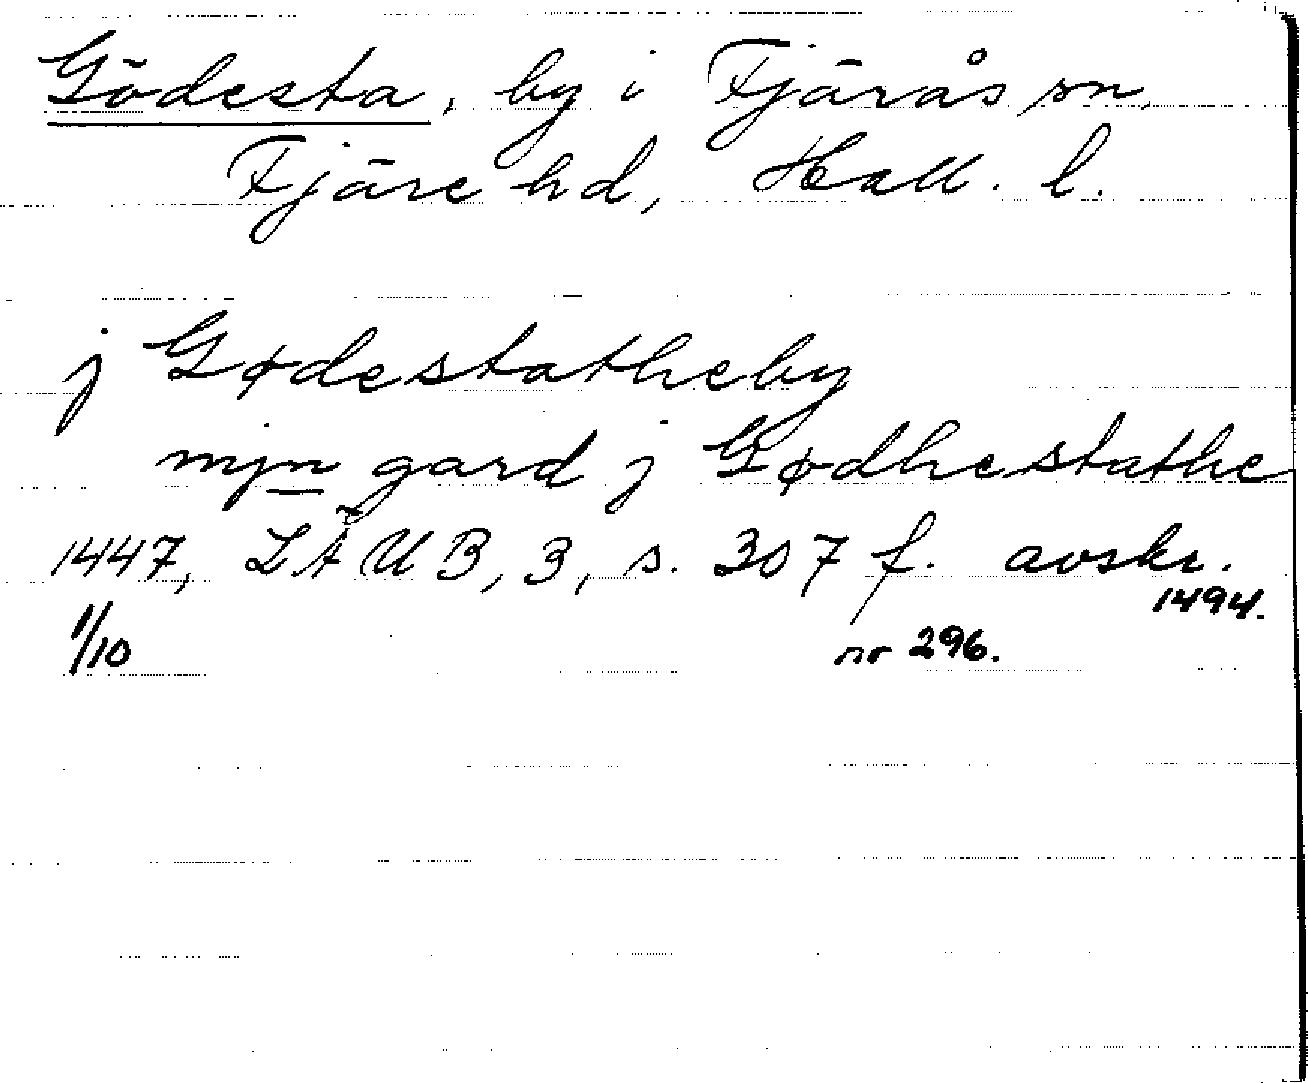 Gödesta, by i Fjärås sn,
Fjäre hd, Hall. l.
j Gødestatheby
mjn gard j Gødhestathe
1447, LÄUB, 3, s. 307 f. avskr.
1494.
1/10 nr 296.